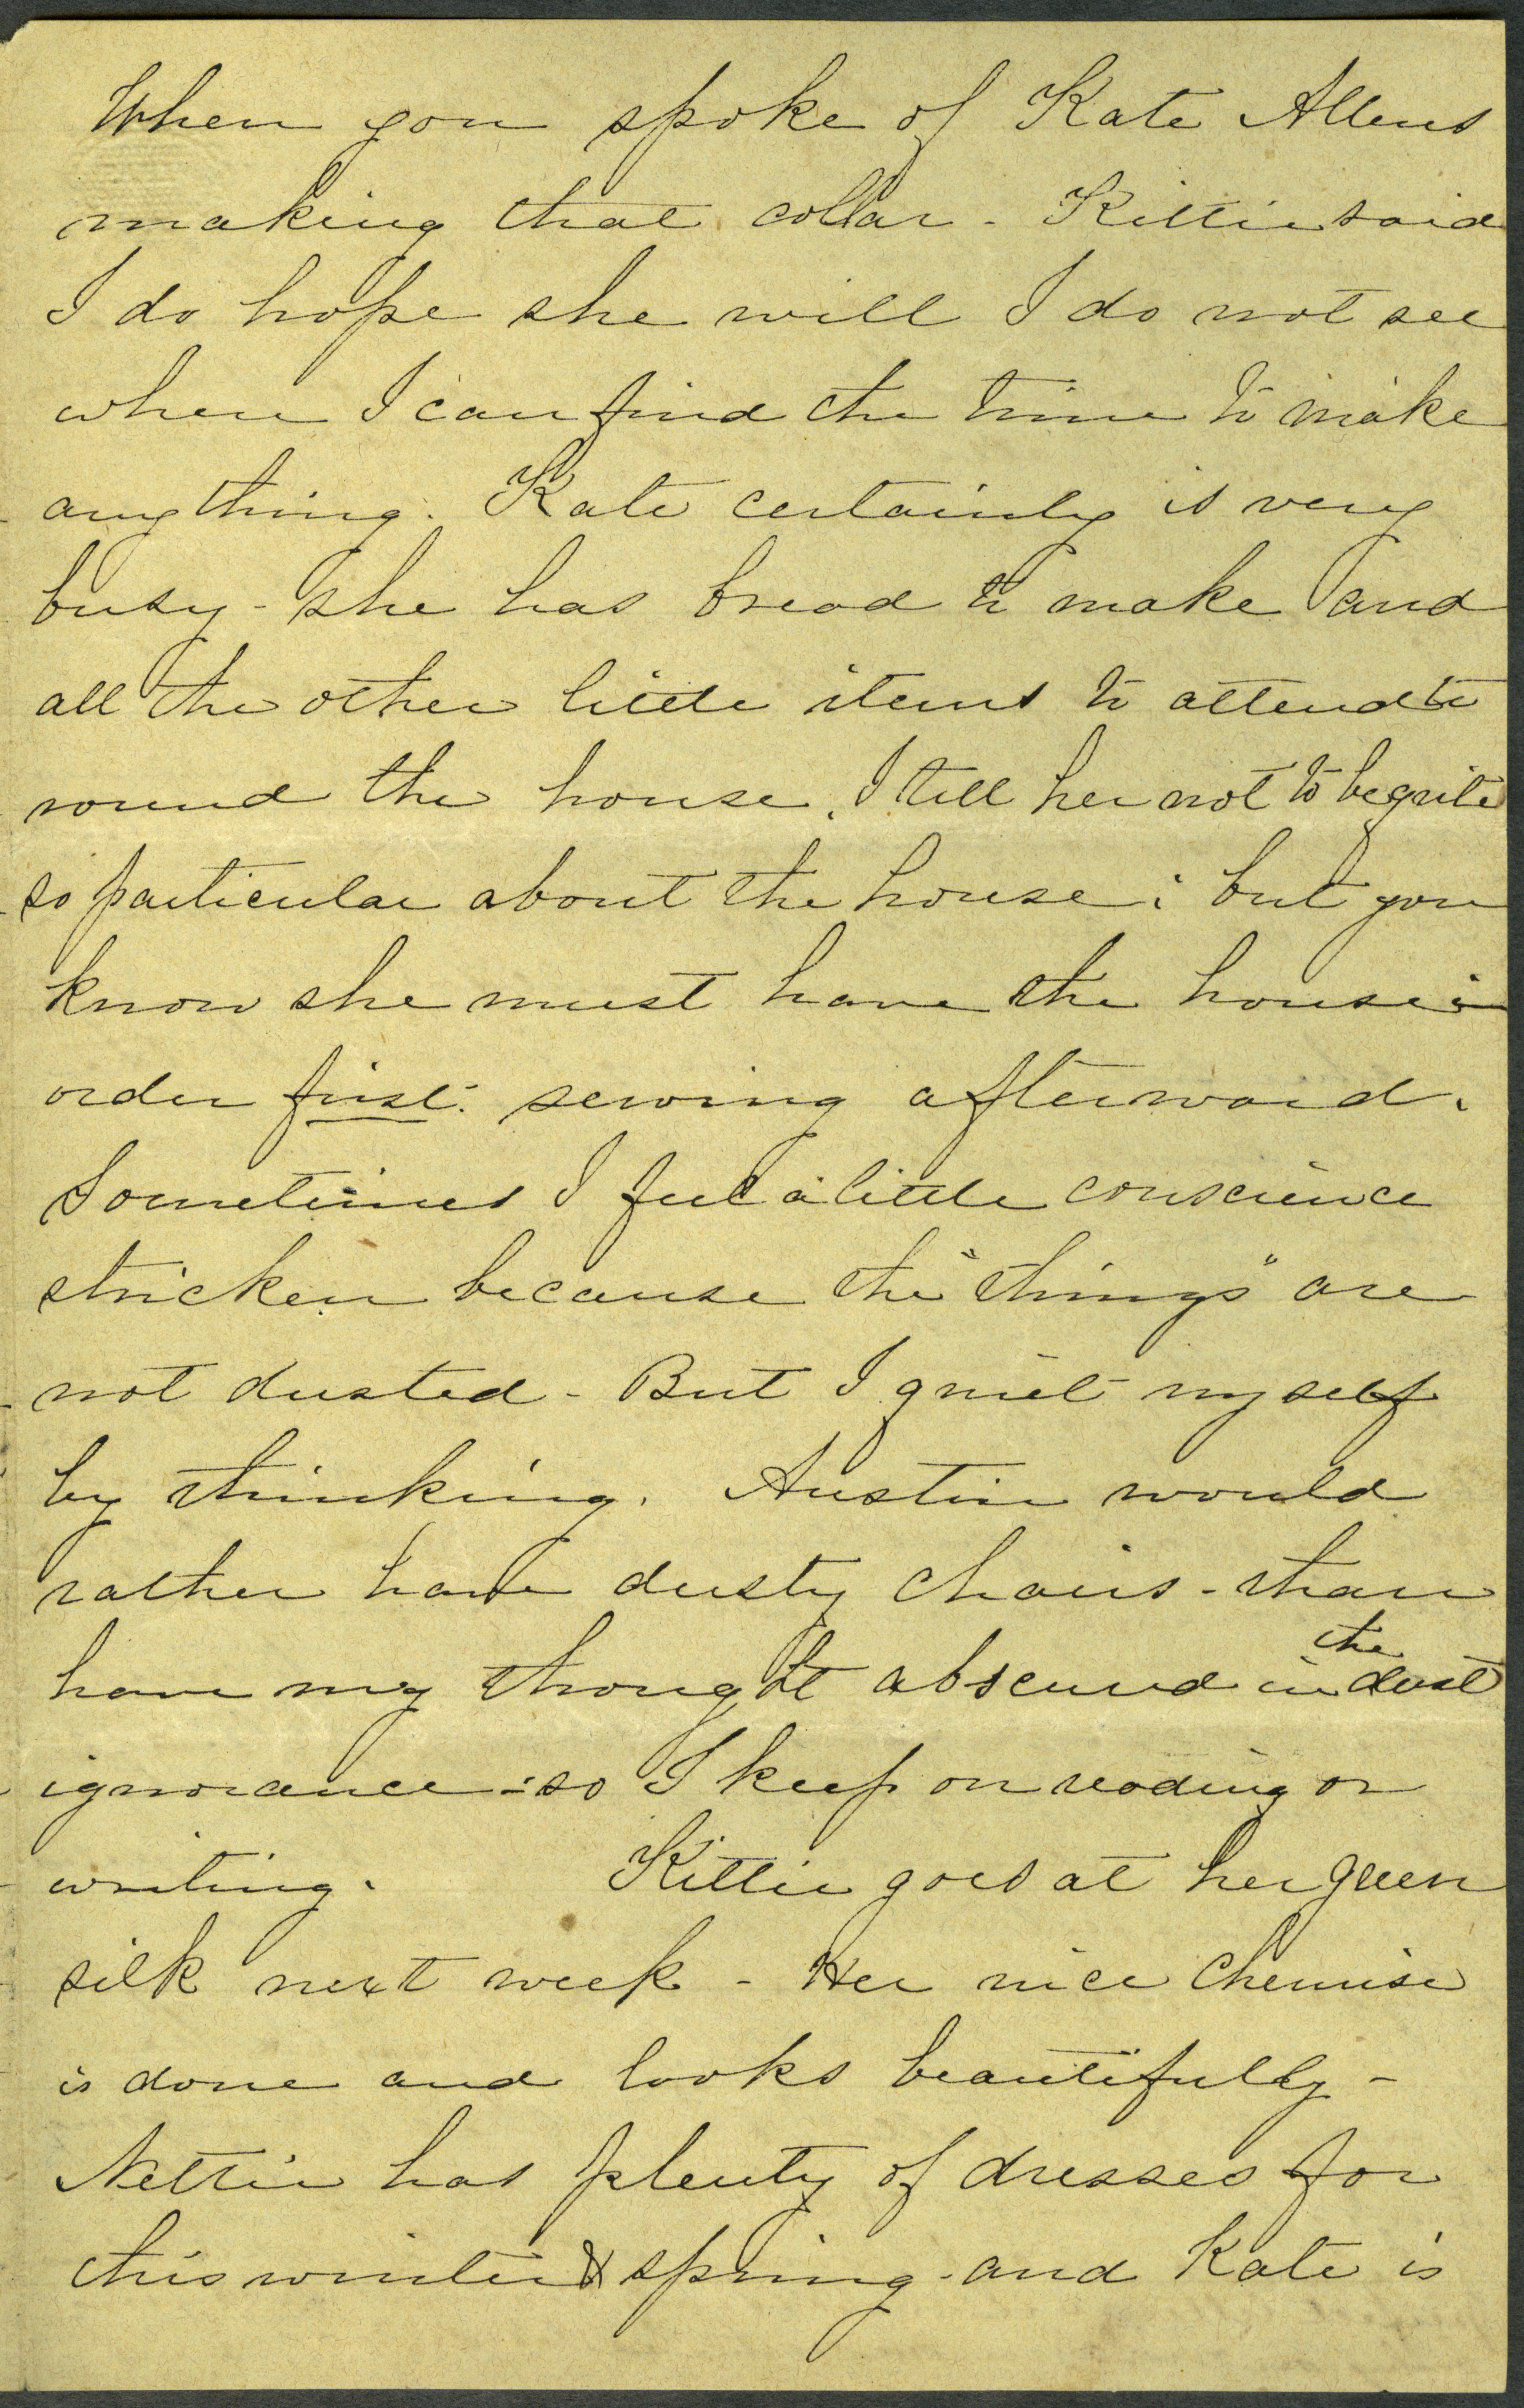 When you spoke of Kate Allens
making that collar - Kittie said
I do hope she will I do not see
where I can find the time to make
any thing. Kate certainly is very
busy - she has bread to make and
all the other little items to attend to
round the house. I tell her not to be quite
so particular about the house; but you
know she must have the house in
order first. sewing afterward.
Sometimes I feel a little conscience
stricken because the "things" are
not dusted - But I quiet myself
by thinking. Austin would
rather have dusty chairs - than
have my thought obscured in the dust
ignorance - so I keep on reading or
writing. Kittie goes at her green
silk next week - Her nice chemise
is done and looks beautifully -
Nettie has plenty of dresses for
this winter & spring - and Kate is